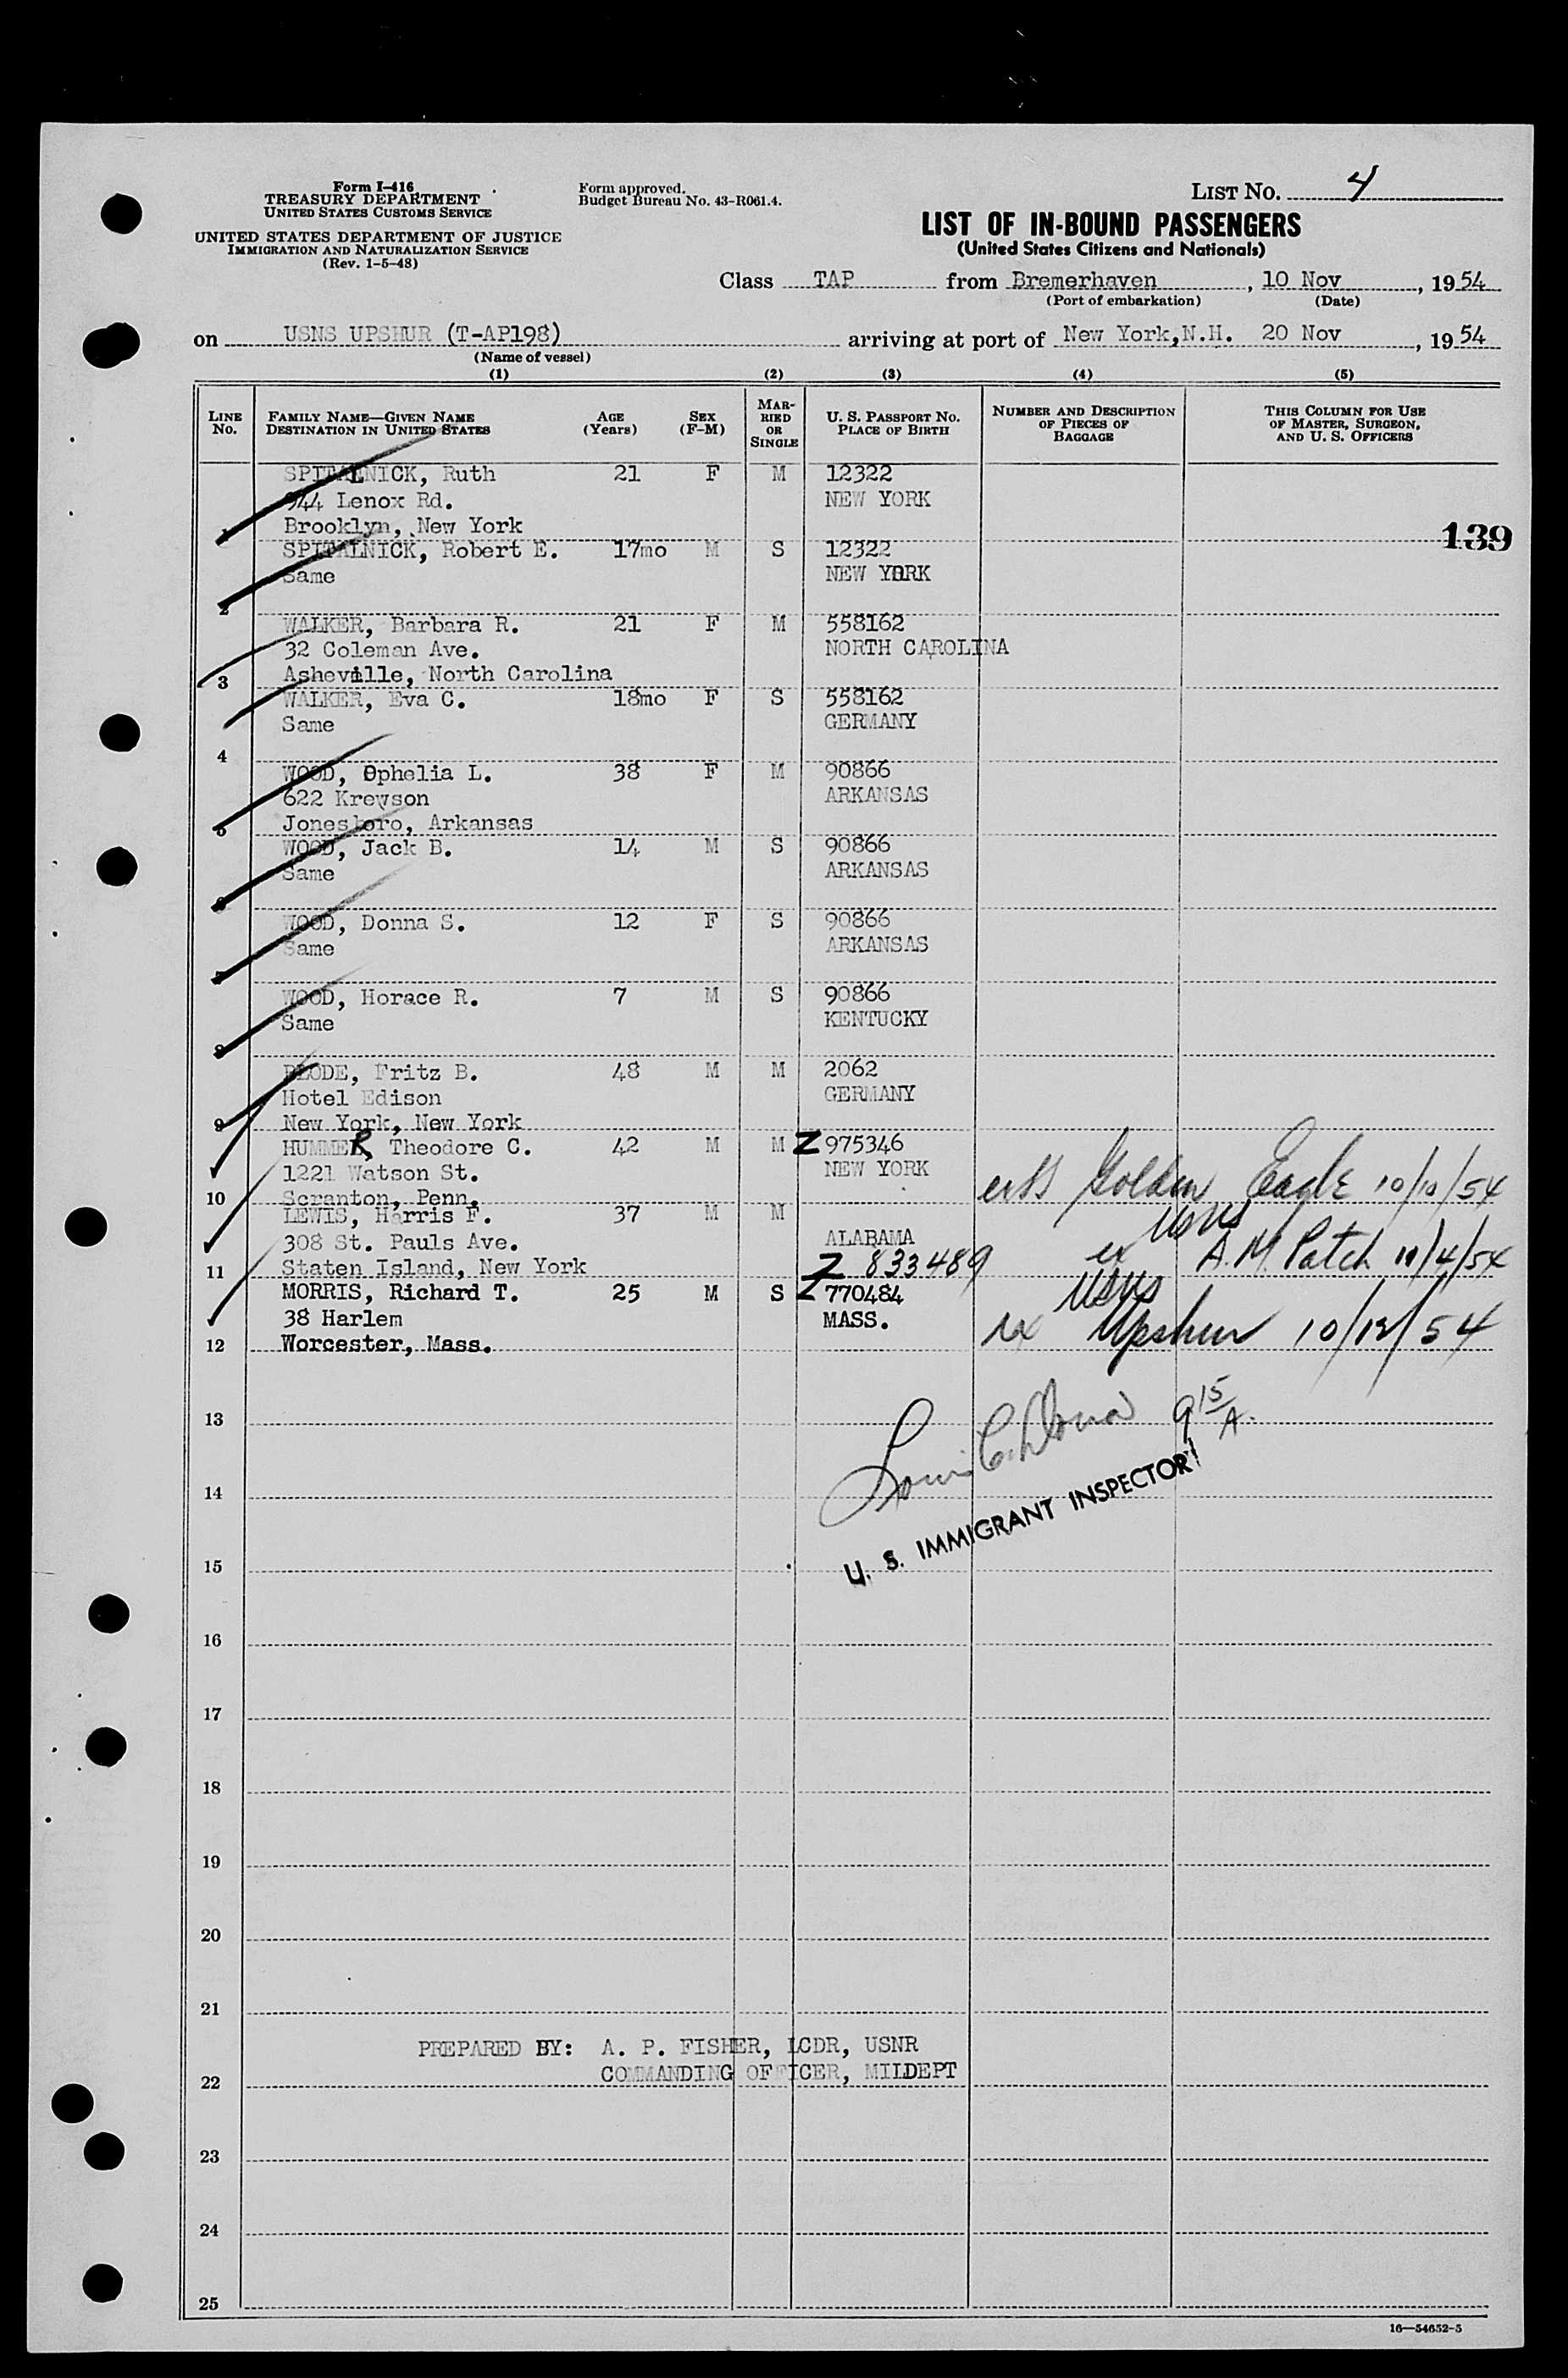 Form I-416
TREASURY DEPARTMENT
UNITED STATES CUSTOMS SERVICE
UNITED STATES DEPARTMENT OF JUSTICE
IMMIGRATION AND NATURALIZATION SERVICE
(Rev. 1-5-48)
Form approved.
Budget Bureau No. 43-R061.4.
LIST NO. 4
LIST OF IN-BOUND PASSENGERS
(United States Citizens and Nationals)
Class TAP from Bremerhaven, 10 Nov, 1954
(Port of embarkation) (Date)
on USNS UPSHUR (T-AP198) arriving at port of New York, N.H. 20 Nov, 1954
(Name of vessel)
(1) (2) (3) (4) (5)
LINE NO. FAMILY NAME—GIVEN NAME DESTINATION IN UNITED STATES AGE (Years) SEX (F-M) MARRIED OR SINGLE U. S. PASSPORT NO. PLACE OF BIRTH NUMBER AND DESCRIPTION OF PIECES OF BAGGAGE THIS COLUMN FOR USE OF MASTER, SURGEON, AND U. S. OFFICERS
SPITALNICK, Ruth 21 F M 12322
944 Lenox Rd. NEW YORK
1 Brooklyn, New York
139
SPITALNICK, Robert E. 17mo M S 12322
Same NEW YORK
2
WALKER, Barbara R. 21 F M 558162
32 Coleman Ave. NORTH CAROLINA
3 Asheville, North Carolina
WALKER, Eva C. 18mo F S 558162
Same GERMANY
4
WOOD, Ophelia L. 38 F M 90866
622 Krewson ARKANSAS
5 Jonesboro, Arkansas
WOOD, Jack B. 14 M S 90866
Same ARKANSAS
6
WOOD, Donna S. 12 F S 90866
Same ARKANSAS
7
WOOD, Horace R. 7 M S 90866
Same KENTUCKY
8
BLODE, Fritz B. 48 M M 2062
Hotel Edison GERMANY
9 New York, New York
HUMMER, Theodore C. 42 M M Z 975346
1221 Watson St. NEW YORK
10 Scranton, Penn, Golden Eagle 10/10/54
LEWIS, Harris F. 37 M M USNS
308 St. Pauls Ave. ALABAMA ex A.M. Patch 11/4/54
11 Staten Island, New York Z 833489
MORRIS, Richard T. 25 M S Z 770484 USNS
38 Harlem MASS. ex Upshur 10/12/54
12 Worcester, Mass.
13 Louis 9 15/A.
14
U. S. IMMIGRANT INSPECTOR
15
16
17
18
19
20
21
PREPARED BY: A. P. FISHER, LCDR, USNR
22 COMMANDING OFFICER, MILDEPT
23
24
25
16—54652-5